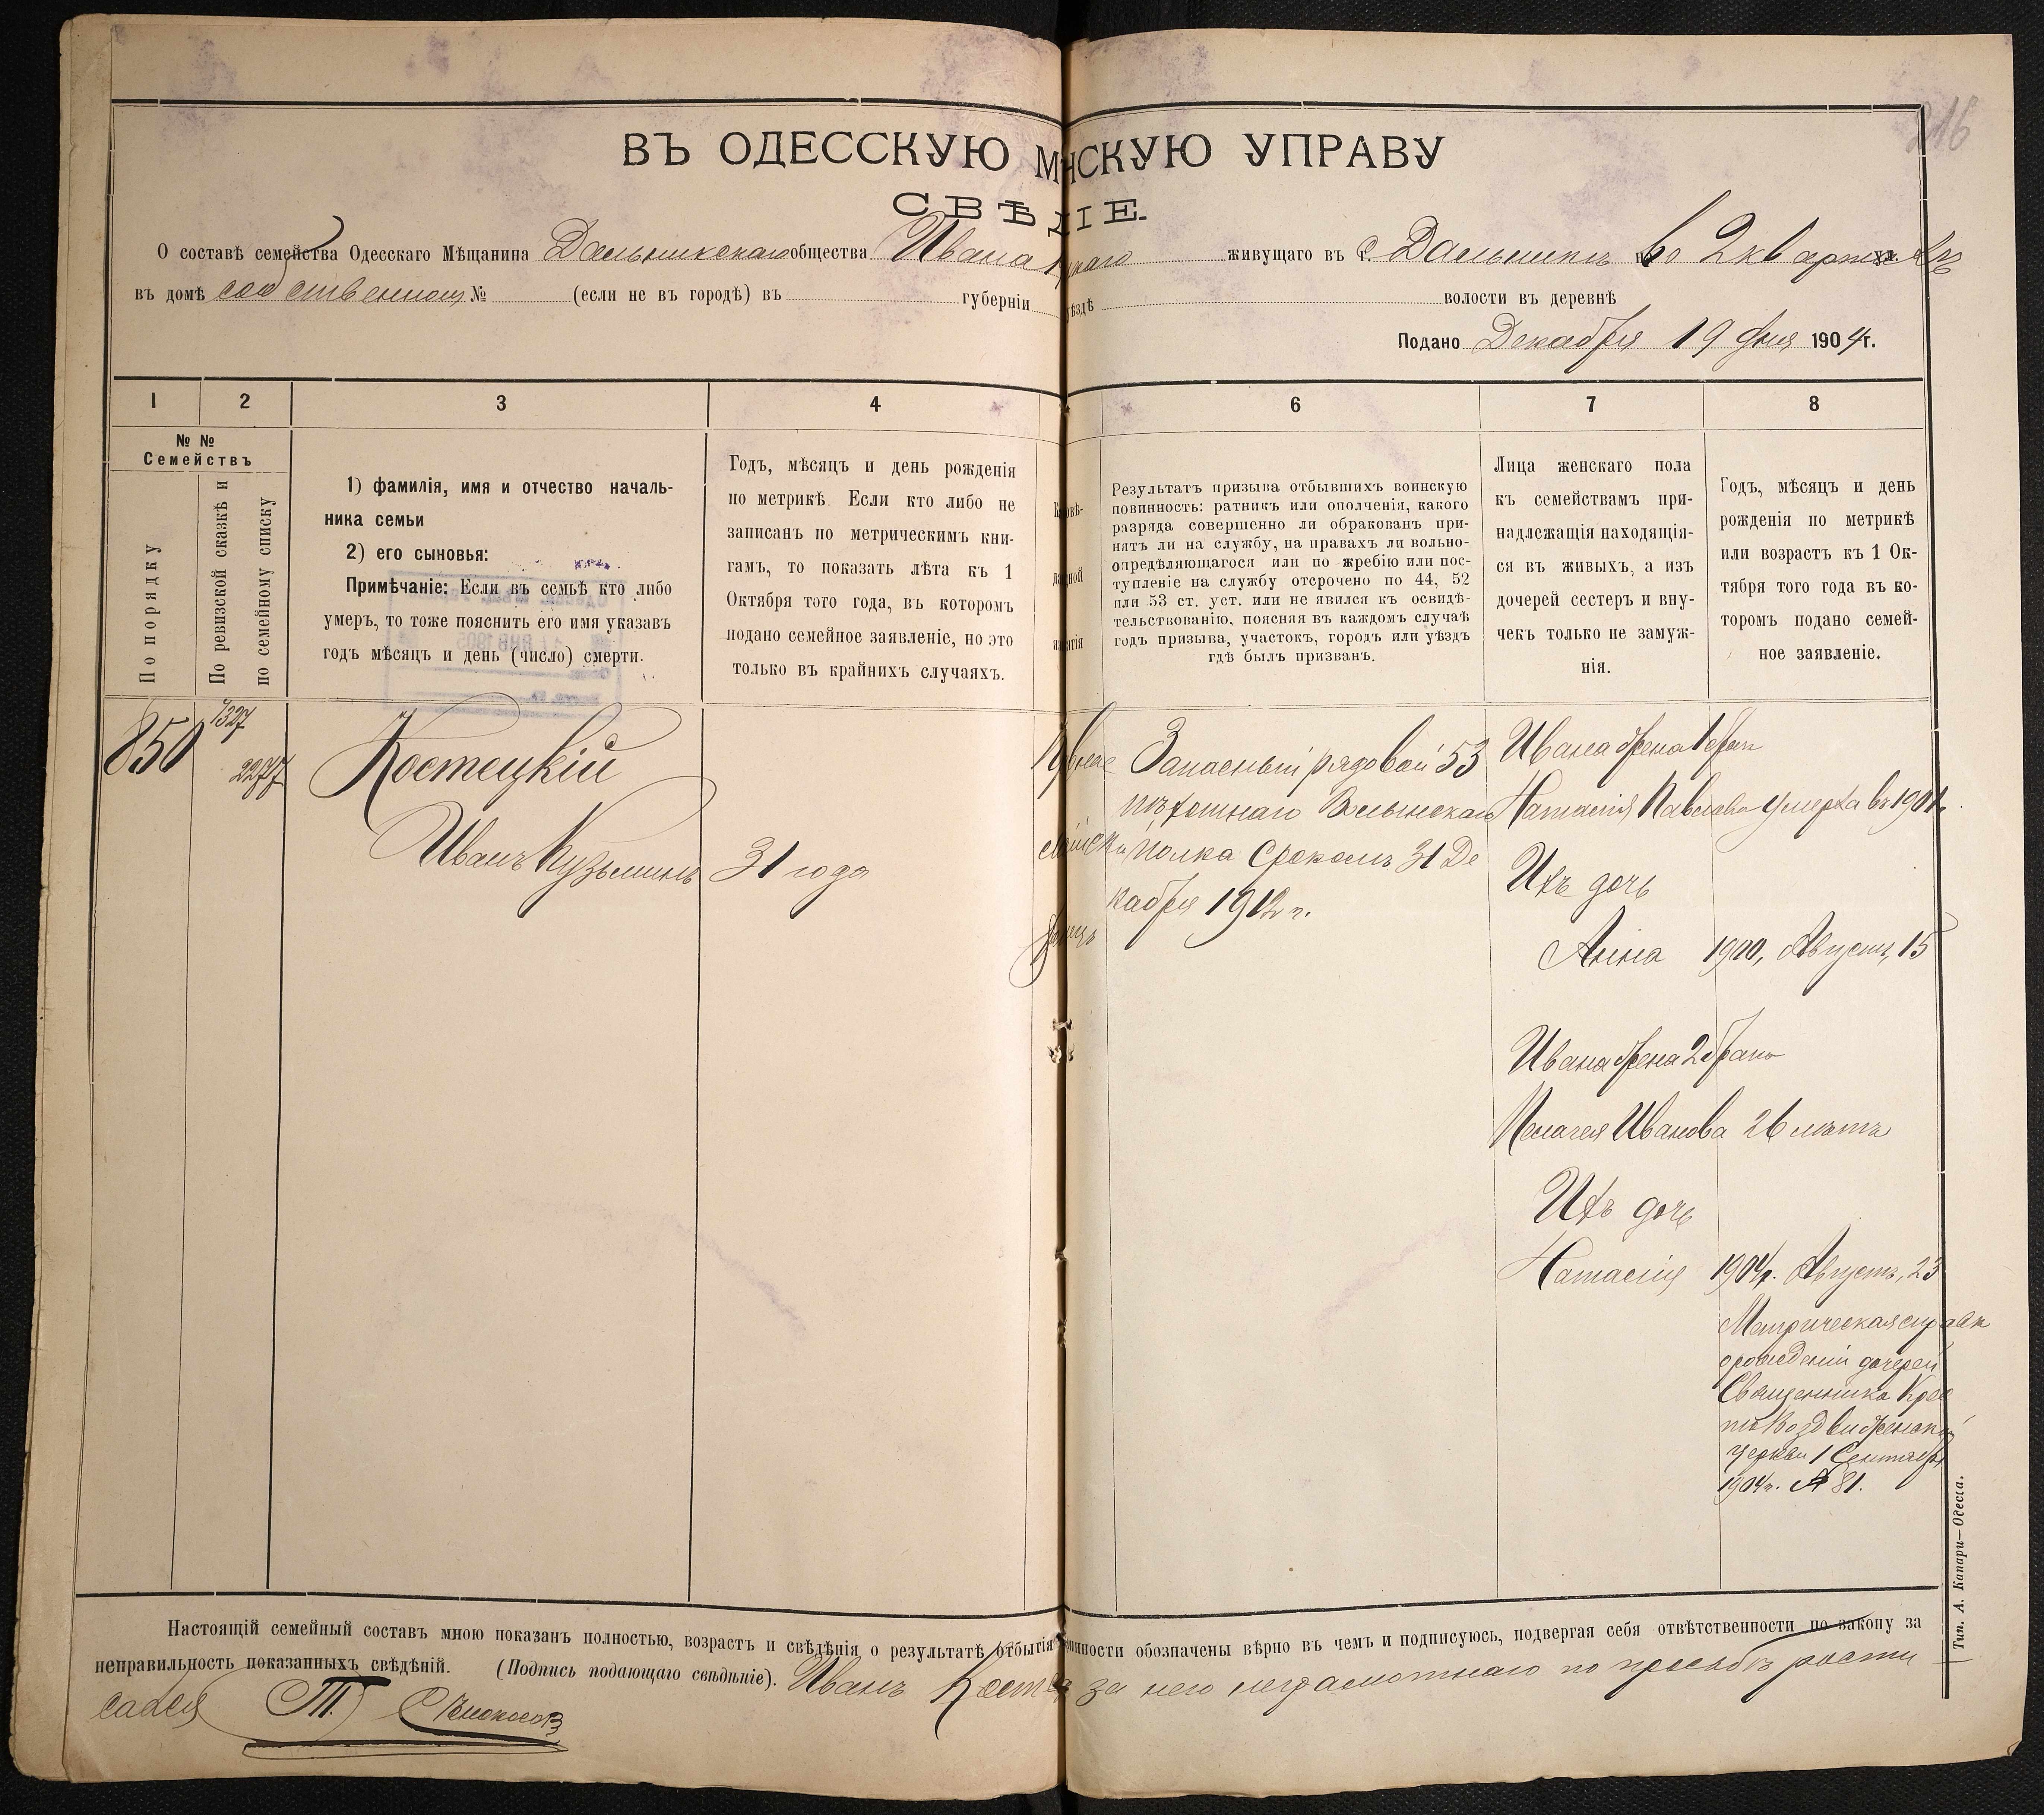 216
ВЪ ОДЕССКУЮ М НСКУЮ УПРАВУ
СВѢ ІЕ.
О составѣ семейства Одесскаго Мѣщанина Дальникскаго общества Ивана живущаго въ с. Дальникъ во 2 квартале
въ домѣ собственном № (если не въ городѣ) въ губерніи уѣздѣ волости въ деревнѣ
Подано Декабря 19 дня 1904 г.
1 2 3 4 6 7 8
№ №
Семействъ
По порядку
По ревизской сказкѣ и
по семейному списку
1) фамилія, имя и отчество началь-
ника семьи
2) его сыновья:
Примѣчаніе: Если въ семьѣ кто либо
умеръ, то тоже пояснить его имя указавъ
годъ мѣсяцъ и день (число) смерти.
Годъ, мѣсяцъ и день рожденія
по метрикѣ. Если кто либо не
записанъ по метрическимъ кни-
гамъ, то показать лѣта къ 1
Октября того года, въ которомъ
подано семейное заявленіе, но это
только въ крайнихъ случаяхъ.
Результатъ призыва отбывшихъ воинскую
повинность: ратникъ или ополченія, какого
разряда совершенно ли обракованъ при-
нятъ ли на службу, на правахъ ли вольно-
опредѣляющагося или по жребію или пос-
тупленіе на службу отсрочено по 44, 52
или 53 ст. уст. или не явился къ освидѣ-
тельствованію, поясняя въ каждомъ случаѣ
годъ призыва, участокъ, городъ или уѣздъ
гдѣ былъ призванъ.
Лица женскаго пола
къ семействамъ при-
надлежащія находящія-
ся въ живыхъ, а изъ
дочерей сестеръ и вну-
чекъ только не замуж-
нія.
Годъ, мѣсяцъ и день
рожденія по метрикѣ
или возрастъ къ 1 Ок-
тября того года въ ко-
торомъ подано семей-
ное заявленіе.
850
1327
2277
Костецкій
Иванъ Кузьминъ 31 года
Запасный рядовой 53
пѣхотнаго Волынскаго
полка срокомъ 31 Де
кабря 1912 г.
Ивана жена 1 брака
Натасія Павлова умерла въ 1901 г.
Ихъ дочь
Анна 1900, Августъ, 15
Ивана жена 2 брака
Пелагея Иванова 26 лѣтъ
Ихъ дочь
Натасія 1904 г. Августъ, 23
Метрическая справк
о рожденіи дочерей
Священника Крес
то Воздвиженской
церкви 1 Сентября
1904 г. № 81.
Настоящій семейный составъ мною показанъ полностью, возрастъ и свѣдѣнія о результатѣ отбытія нности обозначены вѣрно въ чемъ и подписуюсь, подвергая себя отвѣтственности по закону за
неправильность показанныхъ свѣдѣній. (Подпись подающаго свѣдѣніе). Иванъ за него неграмотнаго по просьбѣ росписался
Тип. А. Капари—Одесса.